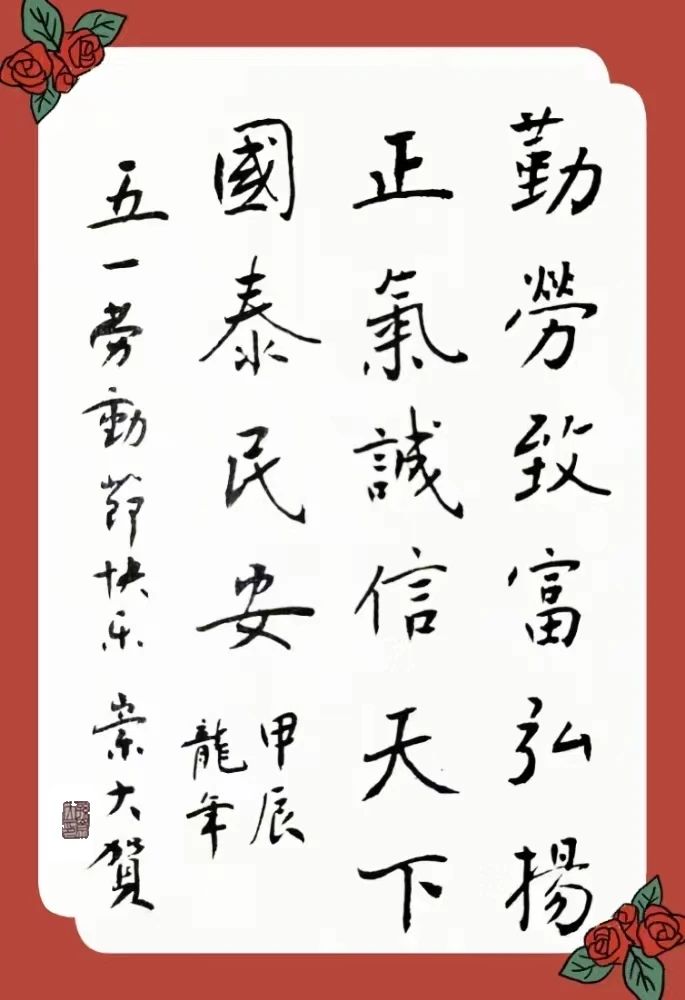 勤勞致富弘揚
正氣誠信天下
國泰民安
甲辰
龍年
五一劳動節快乐 崇大賀